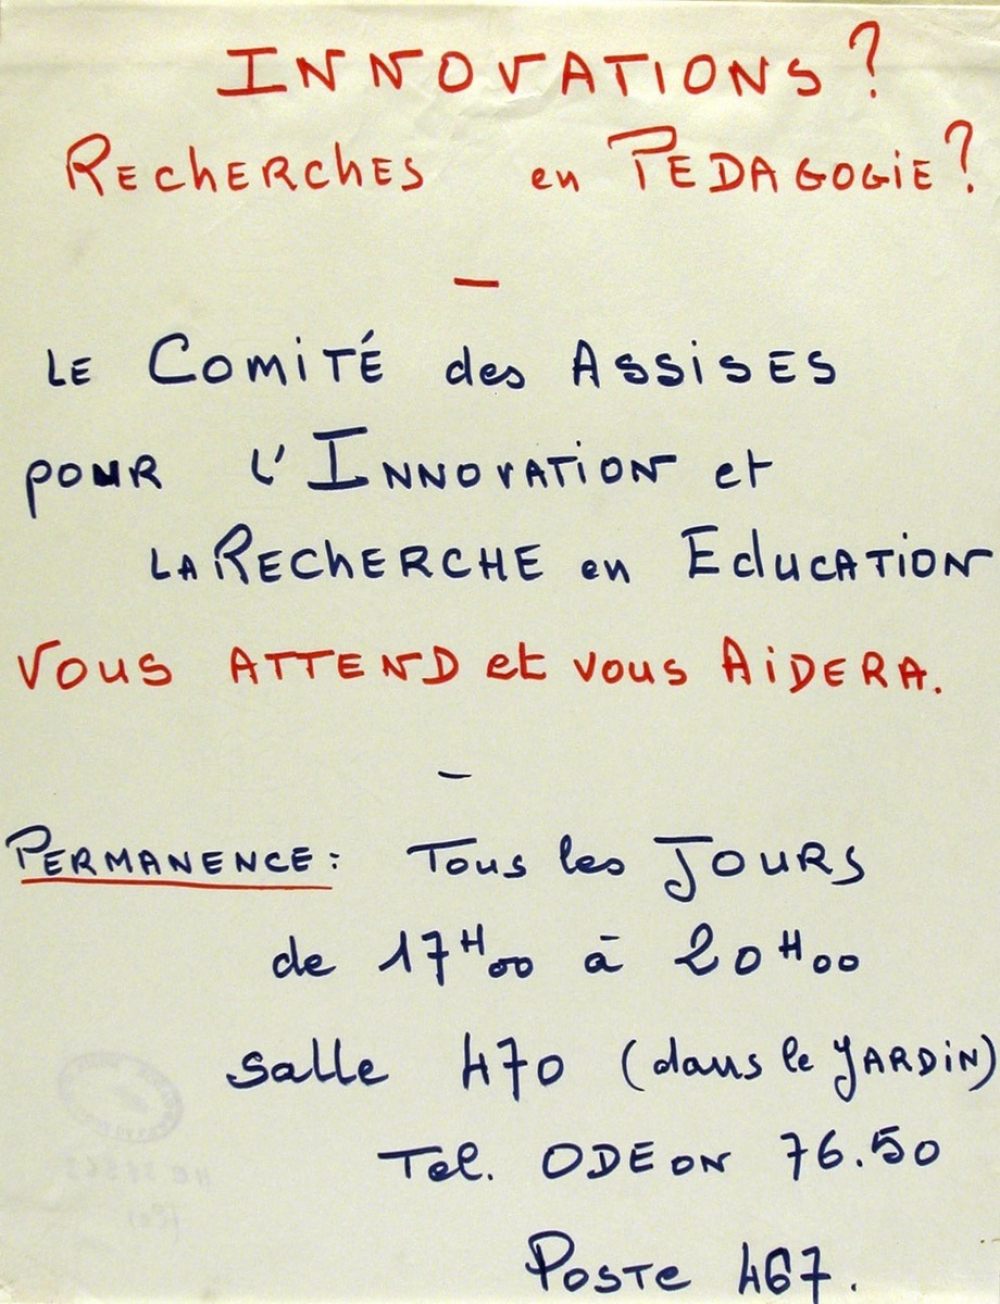 INNOVATIONS?
RECHERCHES en PEDAGOGIE?
—
LE COMITÉ des ASSISES
POUR L'INNOVATION et
LA RECHERCHE en EDUCATION
VOUS ATTEND et vous AIDERA.
—
PERMANENCE: Tous les JOURS
de 17H00 à 20H00
salle 470 (dans le JARDIN)
Tel. ODEON 76.50
POSTE 467.